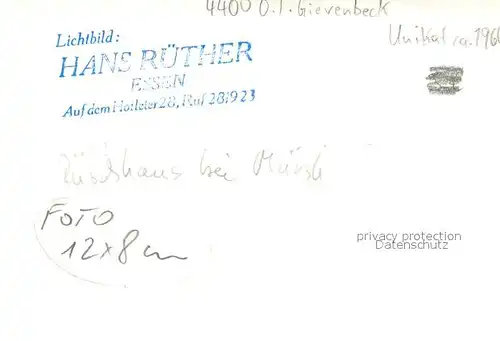 4400 O.T. Gievenbeck
Unikat ca. 196
Lichtbild:
HANS RÜTHER
ESSEN
Auf dem Hotleter 28, Ruf 281923
Rüschhaus bei Münst
FOTO
12x8cm
privacy protection
Datenschutz